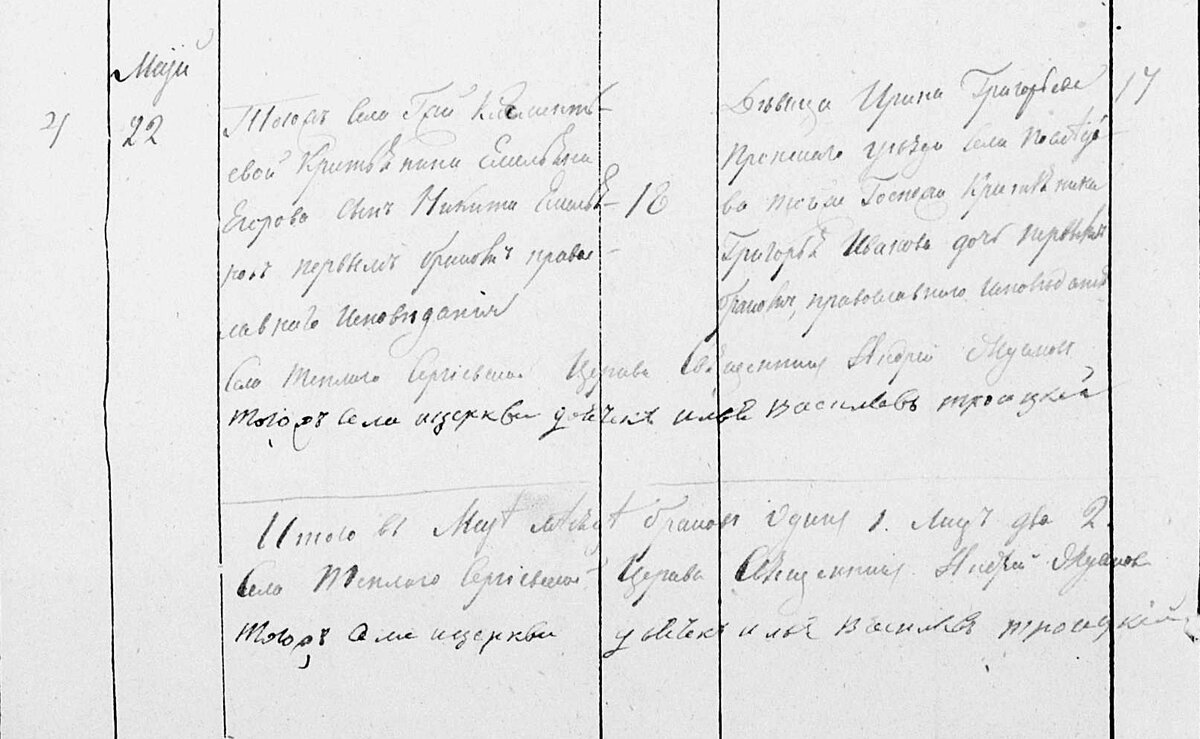 Маий
21
22
Тогожъ села Гжи Клемент-
евой Крестьянина Емельяна
Егорова сынъ Никита Емелья-
18
первымъ бракомъ правос-
лавнаго исповѣданія
Дѣвица Ирина Григорьева
17
Пронскаго уѣзда села
Госпожи Крестьянина
Григорья Иванова дочь первымъ
бракомъ, православнаго исповѣданія
Села Теплаго Сергіевской Церкви Священникъ Андрей
тогожъ села ицеркви дьячекъ илья Василевъ троицкий
Итого въ Маѣ месяцѣ браковъ Одинъ 1. лицъ два 2.
Села Теплаго Сергіевской Церкви Священникъ Андрей
тогожъ села ицеркви дьячекъ илья Василевъ троицкій